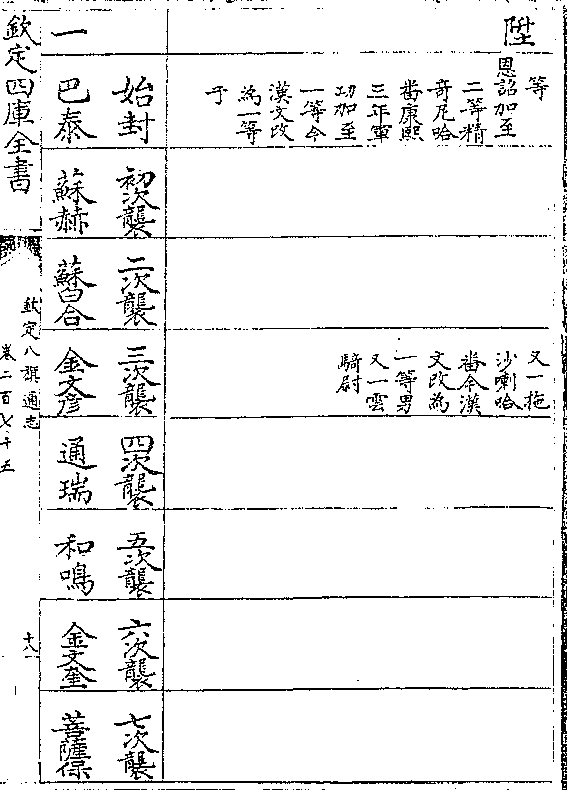 陞
等
恩詔加至
二等精
奇尼哈
番康熙
三年軍
功加至
一等今
漢文改
為一等
子
又一拖
沙喇哈
番今漢
文改為
一等男
又一雲
騎尉
始封
初次襲
二次襲
三次襲
四次襲
五次襲
六次襲
七次襲
一
巴泰
蘇赫
蘇白合
金文彥
通瑞
和鳴
金文奎
菩薩保
欽定四庫全書
欽定八旗通志
卷二百七十五
十八